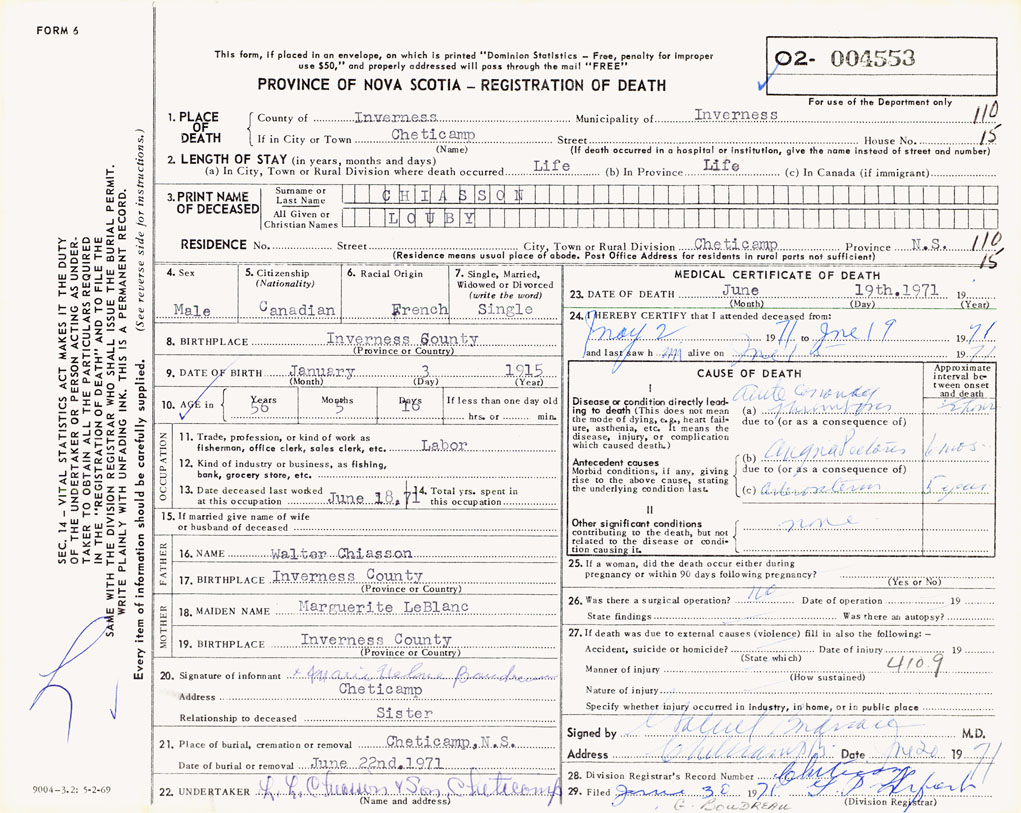 FORM 6
This form, if placed in an envelope, on which is printed "Dominion Statistics – Free, penalty for improper
use $50," and properly addressed will pass through the mail "FREE"
PROVINCE OF NOVA SCOTIA – REGISTRATION OF DEATH
O2- 004553
For use of the Department only
1. PLACE OF DEATH
County of Inverness Municipality of Inverness 110
If in City or Town Cheticamp Street House No. 15
(Name) (If death occurred in a hospital or institution, give the name instead of street and number)
2. LENGTH OF STAY (in years, months and days)
(a) In City, Town or Rural Division where death occurred Life (b) In Province Life (c) In Canada (if immigrant)
3. PRINT NAME OF DECEASED
Surname or Last Name CHIASSON
All Given or Christian Names LOUBY
RESIDENCE No. Street City, Town or Rural Division Cheticamp Province N.S. 110
(Residence means usual place of abode. Post Office Address for residents in rural parts not sufficient) 15
4. Sex
Male
5. Citizenship
(Nationality)
Canadian
6. Racial Origin
French
7. Single, Married,
Widowed or Divorced
(write the word)
Single
8. BIRTHPLACE Inverness County
(Province or Country)
9. DATE OF BIRTH January 3 1915
(Month) (Day) (Year)
10. AGE in Years Months Days If less than one day old
56 5 16 hrs. or min.
OCCUPATION
11. Trade, profession, or kind of work as
fisherman, office clerk, sales clerk, etc. Labor
12. Kind of industry or business, as fishing,
bank, grocery store, etc.
13. Date deceased last worked
at this occupation June 18, 71
14. Total yrs. spent in
this occupation
15. If married give name of wife
or husband of deceased
FATHER
16. NAME Walter Chiasson
17. BIRTHPLACE Inverness County
(Province or Country)
MOTHER
18. MAIDEN NAME Marguerite LeBlanc
19. BIRTHPLACE Inverness County
(Province or Country)
20. Signature of informant x Marie Helene Boudreau
Address Cheticamp
Relationship to deceased Sister
21. Place of burial, cremation or removal Cheticamp, N.S.
Date of burial or removal June 22nd.1971
22. UNDERTAKER L. L. Chiasson & Son, Cheticamp
(Name and address)
MEDICAL CERTIFICATE OF DEATH
23. DATE OF DEATH June 19th.1971 19
(Month) (Day) (Year)
24. I HEREBY CERTIFY that I attended deceased from:
May 2 1971, to June 19 1971
and last saw h im alive on June 1971
CAUSE OF DEATH
Approximate
interval be-
tween onset
and death
I
Disease or condition directly lead-
ing to death (This does not mean
the mode of dying, e.g., heart fail-
ure, asthenia, etc. It means the
disease, injury, or complication
which caused death.)
Acute coronary
(a) thrombosis
due to (or as a consequence of)
(b) Angina Pectoris 6 mos
Antecedent causes
Morbid conditions, if any, giving
rise to the above cause, stating
the underlying condition last.
due to (or as a consequence of)
(c) 5 years
II
Other significant conditions
contributing to the death, but not
related to the disease or condi-
tion causing it.
none
25. If a woman, did the death occur either during
pregnancy or within 90 days following pregnancy?
(Yes or No)
26. Was there a surgical operation? no Date of operation 19
State findings Was there an autopsy?
27. If death was due to external causes (violence) fill in also the following: –
Accident, suicide or homicide? Date of injury 19
(State which)
410.9
Manner of injury
(How sustained)
Nature of injury
Specify whether injury occurred in industry, in home, or in public place
Signed by M.D.
Address Cheticamp Date June 20 1971
28. Division Registrar's Record Number Cheticamp
29. Filed June 30 1971
(Division Registrar)
G. BOUDREAU
SEC. 14 – VITAL STATISTICS ACT MAKES IT THE DUTY
OF THE UNDERTAKER OR PERSON ACTING AS UNDER-
TAKER TO OBTAIN ALL THE PARTICULARS REQUIRED
IN THE "REGISTRATION OF DEATH" AND TO FILE THE
SAME WITH THE DIVISION REGISTRAR WHO SHALL ISSUE THE BURIAL PERMIT.
WRITE PLAINLY WITH UNFADING INK. THIS IS A PERMANENT RECORD.
Every item of information should be carefully supplied. (See reverse side for instructions.)
9004-3.2: 5-2-69